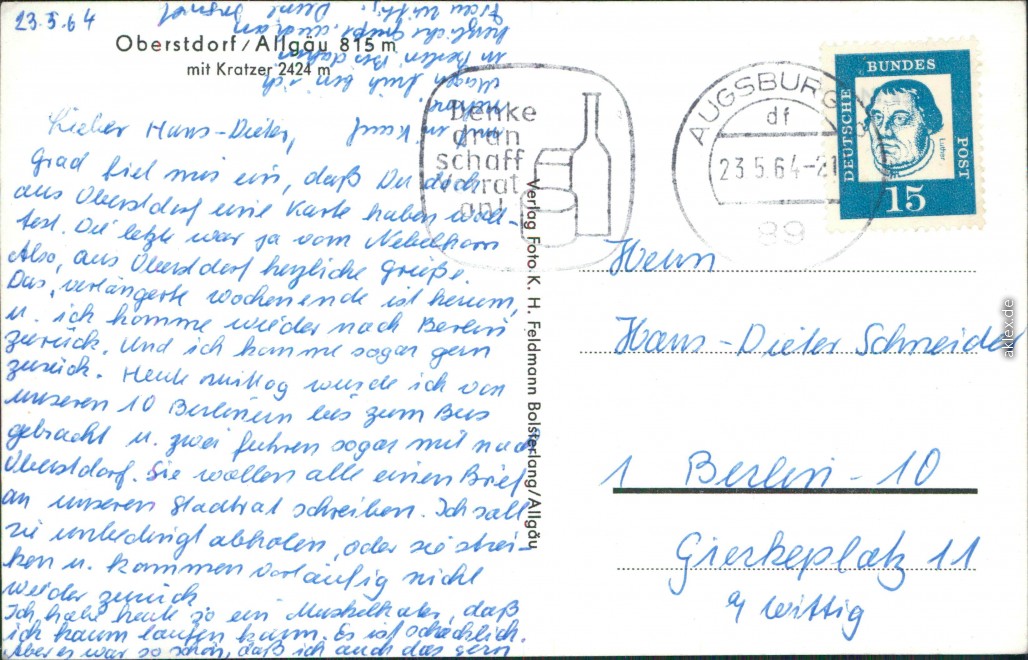 23.5.64
Oberstdorf/Allgäu 815 m
mit Kratzer 2424 m
Lieber Hans-Dieter,
Grad fiel mir ein, daß Du doch
aus Oberstdorf eine Karte haben woll-
test. Die letzte war ja vom Nebelhorn
Also, aus Oberstdorf herzliche Grüße.
Das verlängerte Wochenende ist herum,
u. ich komme wieder nach Berlin
zurück. Und ich komme sogar gern
zurück. Heute mittag wurde ich von
unseren 10 Berlinern bis zum Bus
gebracht u. zwei fuhren sogar mit nach
Oberstdorf. Sie wollen alle einen Brief
an unseren Stadtrat schreiben. Ich soll
sie unbedingt abholen, oder sie strei-
ken u. kommen vorläufig nicht
wieder zurück
Ich habe heute so ein Muskelkater, daß
ich kaum laufen kann. Es ist schrecklich.
Aber es war so schön, daß ich auch das gern
auf in Kauf
nehme.
in Berlin. Bis dahin
herzliche Grüße, auch an
Frau Wittig. Deine
Verlag Foto K. H. Feldmann Bolsterlang/Allgäu
Denke
dran
schaff
Vorrat
an!
AUGSBURG
df
23.5.64-21
89
DEUTSCHE
BUNDES
POST
Luther
15
Herrn
Hans-Dieter Schneider
1 Berlin-10
Gierkeplatz 11
b/ Wittig
akpool.de